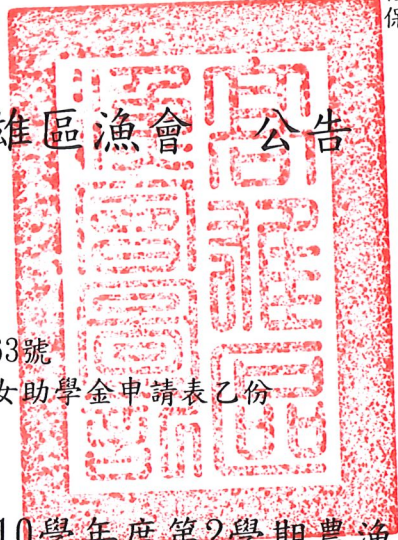 保
雄區漁會 公告
63號
女助學金申請表乙份
10學年度第2學期農漁